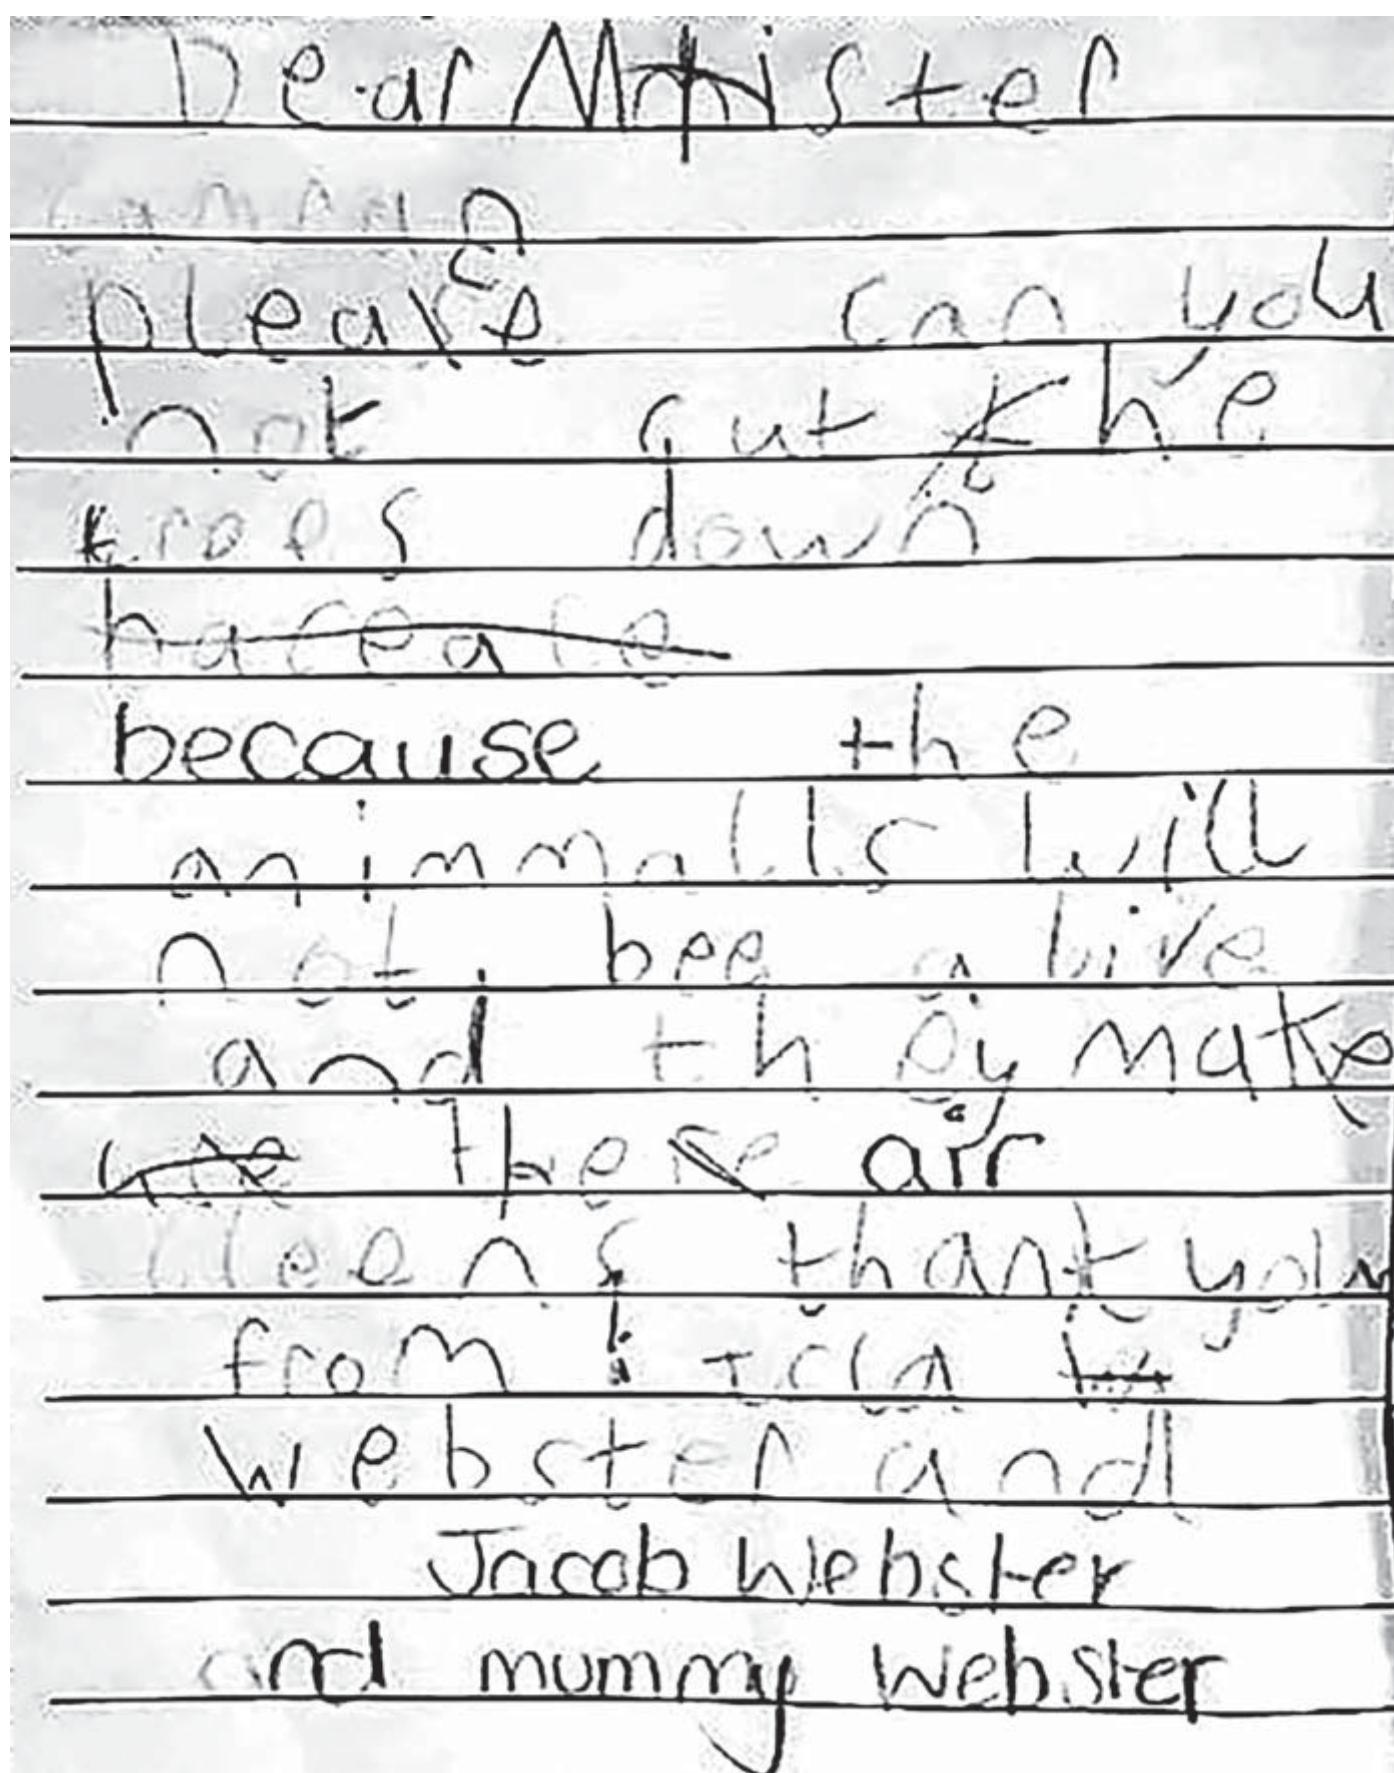 Dear Minister
please can you
not cut the
trees down
because the
animmalls will
not bee alive
and they make
the air
cleens thankyou
from Isla
webster and
Jacob Webster
and mummy Webster